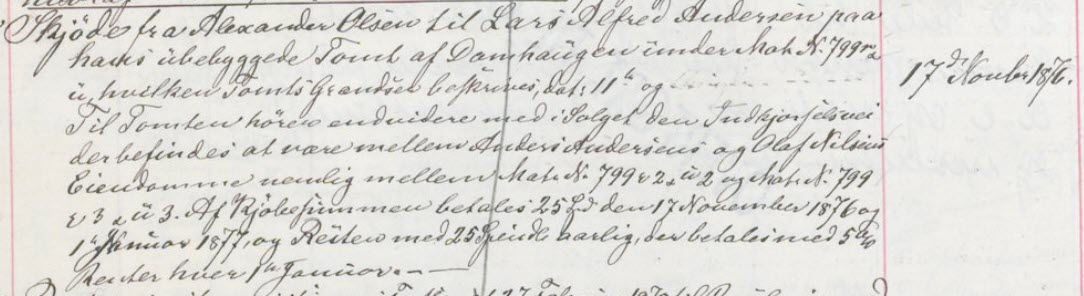 Skjöde fra Alexander Olsen til Lars Alfred Andersen paa
hans übebyggede Tomt af Damhaugen ünder Mat. N. 799
ü, hvilken Tomts Grændser beskrives, dat: 11te og
17de Novbr 1876.
Til Tomten hörer endvidere med i Salget den Indkjørselsvei
der befindes at være mellem Anders Andersens og Olaf Nilsens
Eiendomme nemlig mellem Mat. N. 799 r 2 ü 2 og Mat. N. 799
r 3 ü 3. Af Kjöbesummen betales 25 Spd den 17 November 1876 og
1ste Januar 1877, og Resten med 25 Spd aarlig, der betales med 5 %
Renter hver 1ste Januar.